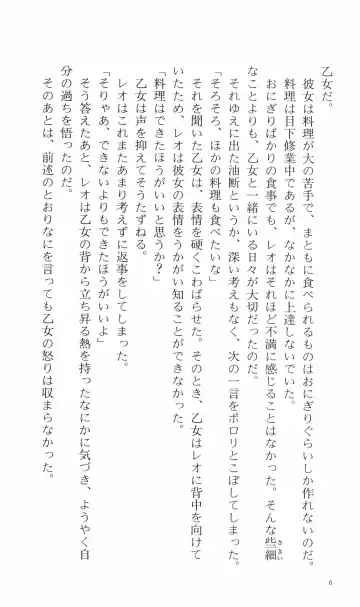 乙女だ。
彼女は料理が大の苦手で、まともに食べられるものはおにぎりぐらいしか作れないのだ。
料理は目下修業中であるが、なかなかに上達しないでいた。
おにぎりばかりの食事でも、レオはそれほど不満に感じることはなかった。そんな些細
なことよりも、乙女と一緒にいる日々が大切だったのだ。
それゆえに出た油断というか、深い考えもなく、次の一言をポロリとこぼしてしまった。
「そろそろ、ほかの料理も食べたいな」
それを聞いた乙女は、表情を硬くこわばらせた。そのとき、乙女はレオに背中を向けて
いたため、レオは彼女の表情をうかがい知ることができなかった。
「料理はできたほうがいいと思うか?」
乙女は声を抑えてそうたずねる。
レオはこれまたあまり考えずに返事をしてしまった。
「そりゃあ、できないよりもできたほうがいいよ」
そう答えたあと、レオは乙女の背から立ち昇る熱を持ったなにかに気づき、ようやく自
分の過ちを悟ったのだ。
そのあとは、前述のとおりなにを言っても乙女の怒りは収まらなかった。
ささい
6